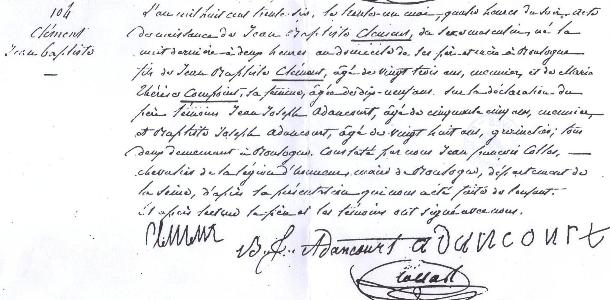 104
Clément
Jean baptiste
L'an mil huit cent trente-six, le trente-un mai, quatre heures du soir, acte
de naissance de Jean Baptiste Clément, du sexe masculin, né la
nuit dernière à deux heures au domicile de ses père et mère à Boulogne
fils de Jean Baptiste Clément, âgé de vingt trois ans, meunier, et de Marie
Thérèse Compoint, sa femme, âgée de dix-neuf ans. Sur la déclaration du
père témoins Jean Joseph Adancourt, âgé de cinquante cinq ans, meunier,
et Baptiste Joseph Adancourt, âgé de vingt huit ans, grainetier, tous
deux demeurant à Boulogne. Constaté par nous Jean françois Collas,
chevalier de la légion d'honneur, maire de Boulogne, département de
la Seine, d'après la présentation qui nous a été faite de l'enfant.
Et après lecture le père et les témoins ont signé avec nous.
Clément
B. J. Adancourt adancourt
Collas